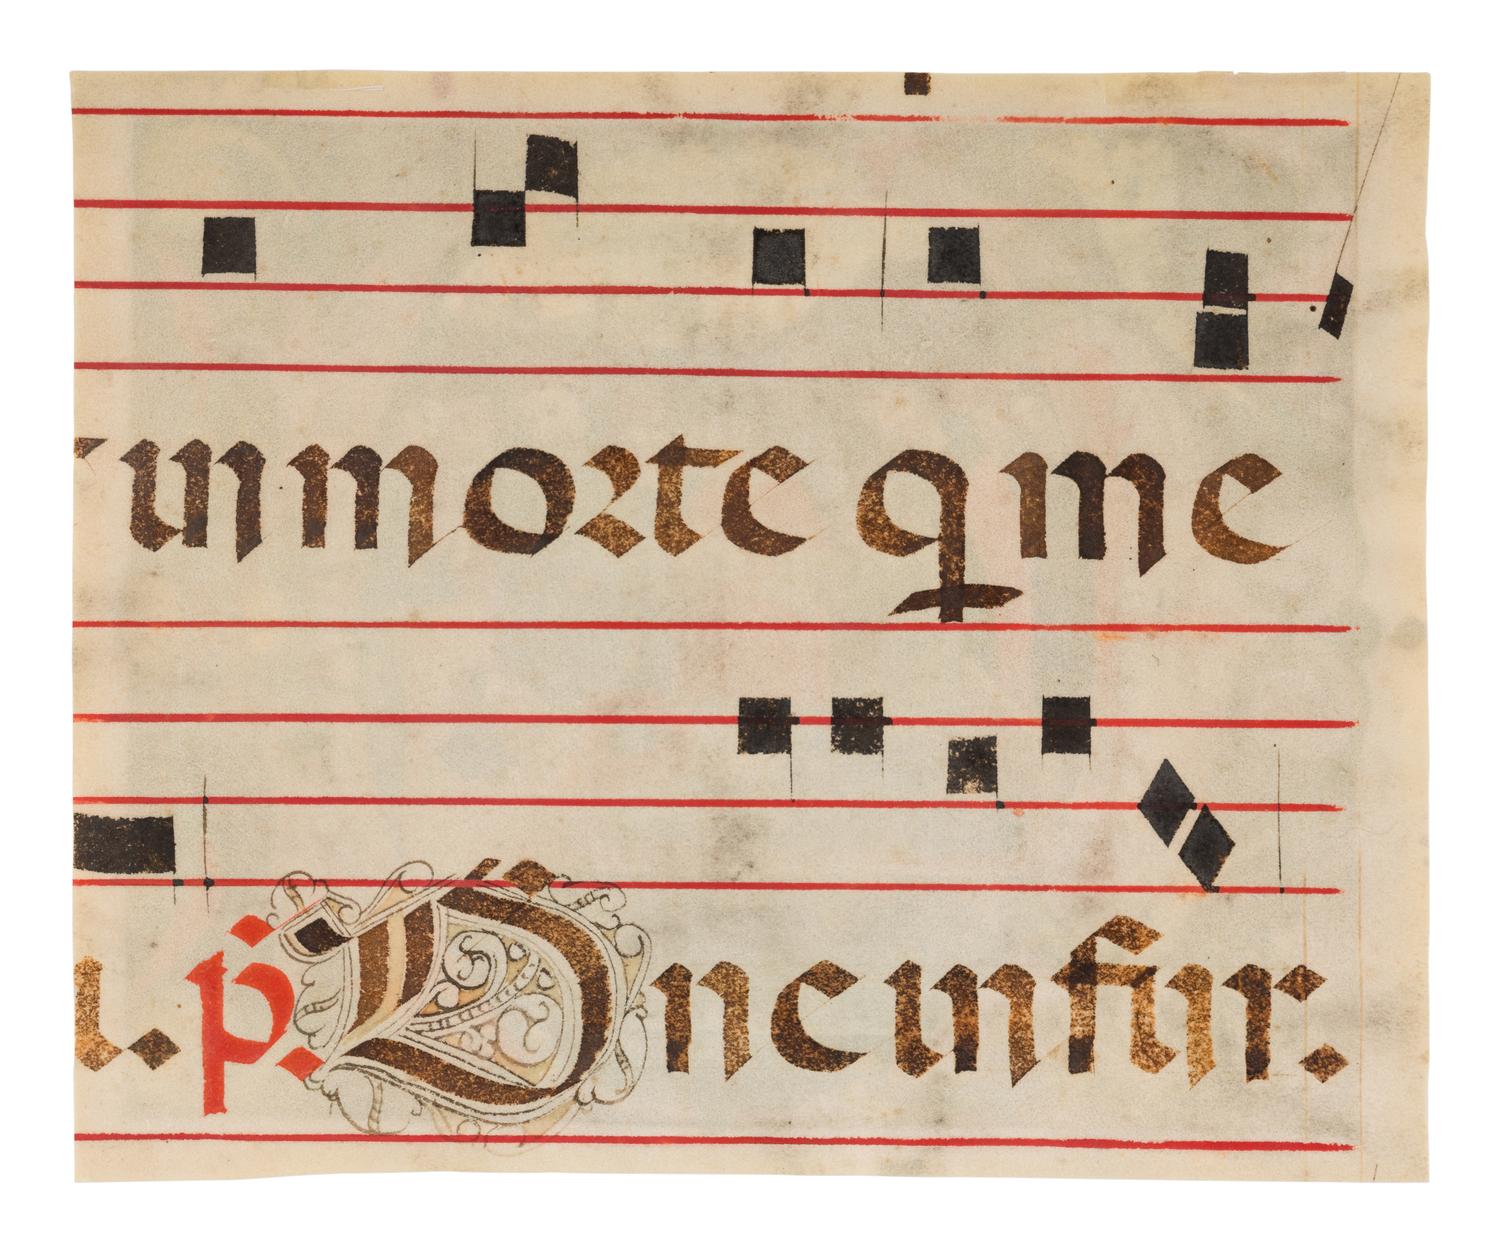 in morte ꝗ me
i. p̄. D̄ne in fur.